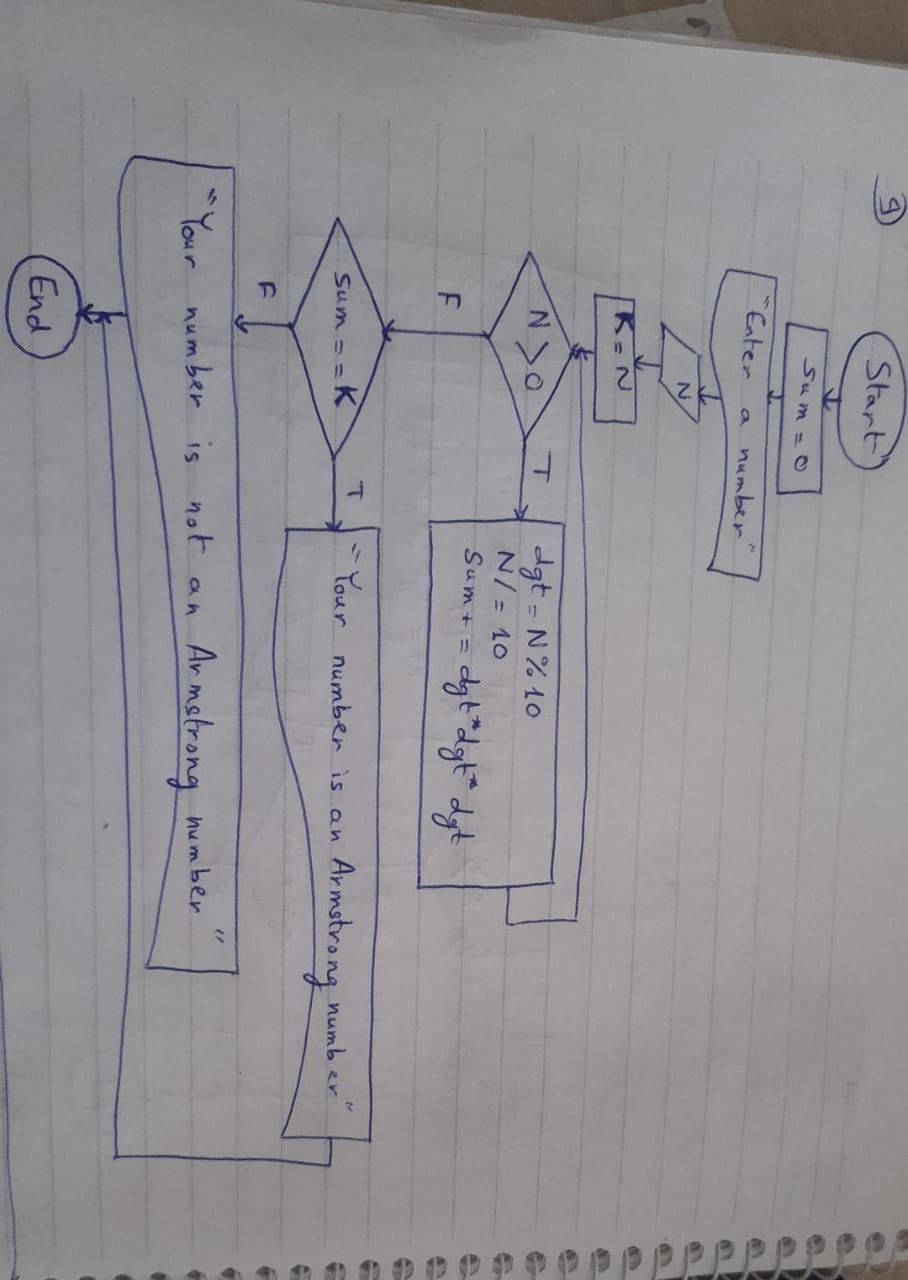 9)
Start
Sum = 0
"Enter a number"
N
K = N
N > 0
T
dgt = N % 10
N / = 10
Sum + = dgt * dgt * dgt
F
Sum = = K
T
"Your number is an Armstrong number"
F
"Your number is not an Armstrong number"
End